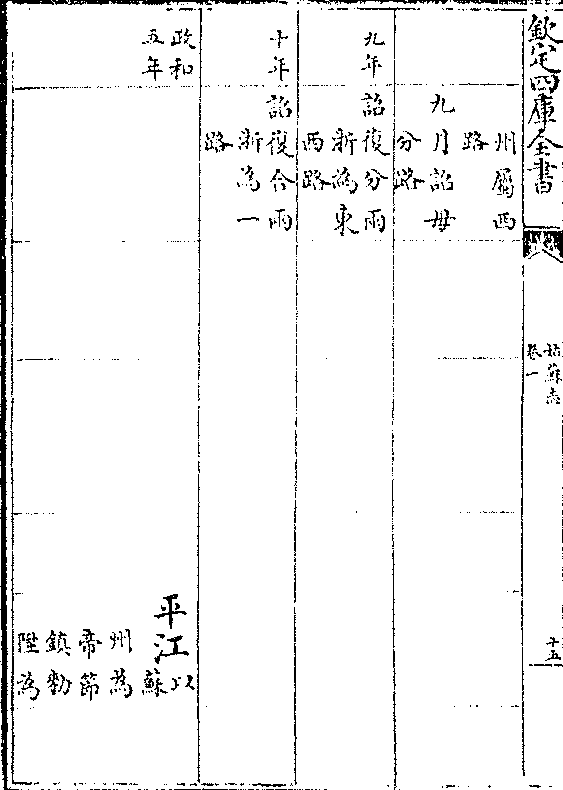 欽定四庫全書
姑蘇志
卷一
十五
州屬西
路
九月詔毋
分路
九年
詔復分兩
浙為東
西路
十年
詔復合兩
浙為一
路
政和
五年
平江
以蘇
州為
帝節
鎮勅
陞為